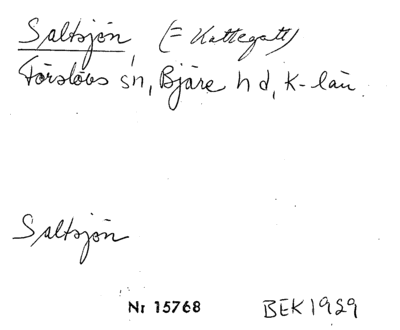 Saltsjön, (= Kattegatt)
Förslövs sn, Bjäre hd, K-län.
Saltsjön
Nr 15768 BEK 1929